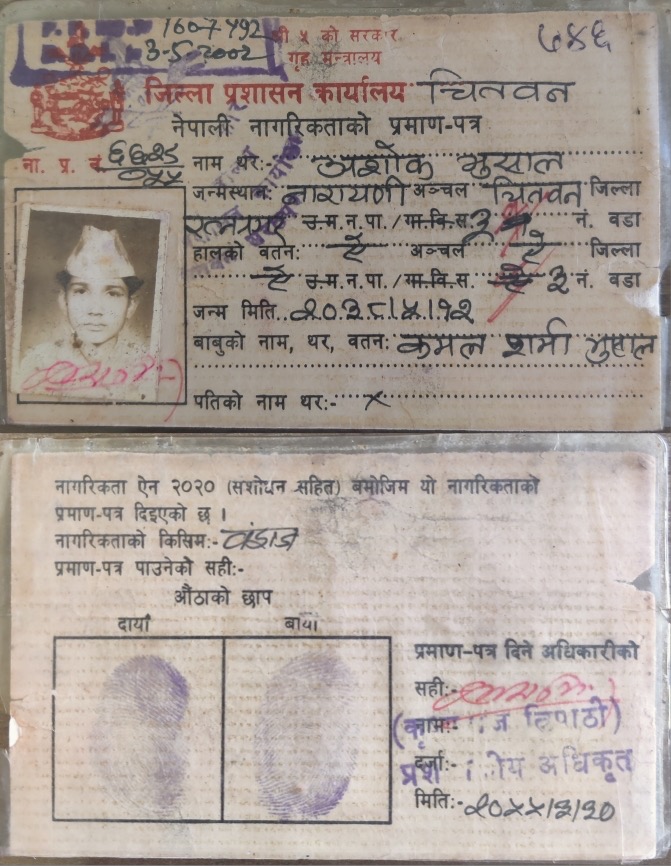 1607492
3-5-2002
७४६
श्री ५ को सरकार
गृह मन्त्रालय
जिल्ला प्रशासन कार्यालय चितवन
नेपाली नागरिकताको प्रमाण-पत्र
ना. प्र. नं
नाम थर:- अशोक भुसाल
जन्मस्थान: नारायणी अञ्चल चितवन जिल्ला
रत्ननगर उ.म.न.पा./गा.वि.स. नं. वडा
हालको वतन: ऐ अञ्चल ऐ जिल्ला
ऐ उ.म.न.पा./गा.वि.स. ३ नं. वडा
जन्म मिति..२०३८।५।१२
बाबुको नाम, थर, वतन: कमल शर्मा भुसाल
पतिको नाम थर:- x
नागरिकता ऐन २०२० (संशोधन सहित) बमोजिम यो नागरिकताको
प्रमाण-पत्र दिइएको छ ।
नागरिकताको किसिम:- वंशज
प्रमाण-पत्र पाउनेको सही:-
औंठाको छाप
दायाँ बायाँ
प्रमाण-पत्र दिने अधिकारीको
सही:-
नामः- त्रिपाठी)
दर्जा:- अधिकृत
मिति:- २०५५।३।१०